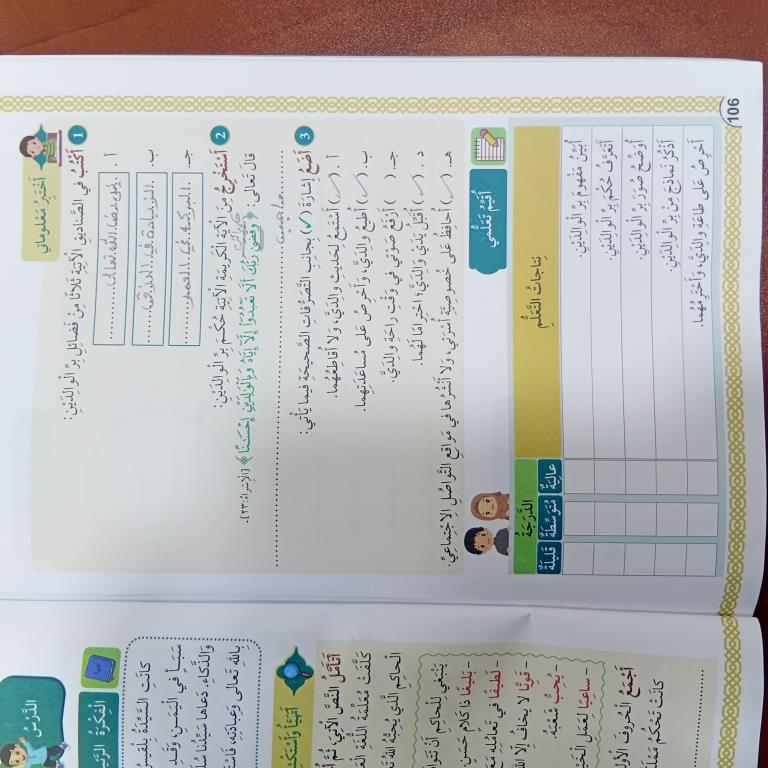 أَخْتَبِرُ مَعْلوماتي
1 أَكْتُبُ في الصَّناديقِ الْآتِيَةِ ثَلاثًا مِنْ فَضائِلِ بِرِّ الْوالِدَيْنِ:
أ . نيل رضا الله تعالى
ب. الزيادة في الرزق
جـ. البركة في العمر
2 أَسْتَخْرِجُ مِنَ الْآيَةِ الْكَريمَةِ الْآتِيَةِ حُكْمَ بِرِّ الْوالِدَيْنِ:
قالَ تَعالى: ﴿ وَقَضَىٰ رَبُّكَ أَلَّا تَعْبُدُوٓاْ إِلَّآ إِيَّاهُ وَبِٱلْوَٰلِدَيْنِ إِحْسَـٰنًا ﴾ [الْإِسْراءُ: ٢٣].
واجب
3 أَضَعُ إِشارَةَ (✓) بِجانِبِ التَّصَرُّفاتِ الصَّحيحَةِ فيما يَأْتي:
أ . (✓) أَسْتَمِعُ لِحَديثِ والِدَيَّ، وَلا أُقاطِعُهُما.
ب. (✓) أُطيعُ والِدَيَّ، وَأَحْرِصُ عَلى مُساعَدَتِهِما.
جـ. ( ) أَرْفَعُ صَوْتي في وَقْتِ راحَةِ والِدَيَّ.
د . (✓) أُقَبِّلُ يَدَيْ والِدَيَّ؛ احْتِرامًا لَهُما.
هـ. (✓) أُحافِظُ عَلى خُصوصِيَّةِ أُسْرَتي، وَلا أَنْشُرُها في مَواقِعِ التَّواصُلِ الِاجْتِماعِيِّ.
أُقَيِّمُ تَعَلُّمي
نِتاجاتُ التَّعَلُّمِ
الدَّرَجَةُ
عالِيَةٌ مُتَوَسِّطَةٌ قَليلَةٌ
أُبَيِّنُ مَفْهومَ بِرِّ الْوالِدَيْنِ.
أَتَعَرَّفُ حُكْمَ بِرِّ الْوالِدَيْنِ.
أُوَضِّحُ صُوَرَ بِرِّ الْوالِدَيْنِ.
أَذْكُرُ نَماذِجَ مِنْ بِرِّ الْوالِدَيْنِ.
أَحْرِصُ عَلى طاعَةِ والِدَيَّ، وَأَحْتَرِمُهُما.
106
الدَّرْسُ
الْفِكْرَةُ
كانَتِ السَّيِّدَةُ بِلْقيسُ
سَبَأَ في الْيَمَنِ، وَقَدِ
وَالذَّكاءِ، دَعاها سَيِّدُنا
بِاللهِ تَعالى وَعِبادَتِهِ،
أَتَهَيَّأُ وَأَسْتَكْشِفُ
أَتَأَمَّلُ النَّصَّ الْآتِيَ، ثُمَّ
كَلَّفَتْ مُعَلِّمَةُ اللُّغَةِ
الْحاكِمِ الَّذي يُحِبُّهُ
يَنْبَغي لِلْحاكِمِ أَنْ
- بَليغًا ذا كَلامٍ حَسَنٍ
- لَطيفًا في تَعامُلِهِ
- قَوِيًّا لا يَخافُ إِلّا
- يُحِبُّ شَعْبَهُ
- ساعِيًا لِعَمَلِ الْخَيْرِ
أَجْمَعُ الْحُروفَ
كانَتْ تَحْكُمُ